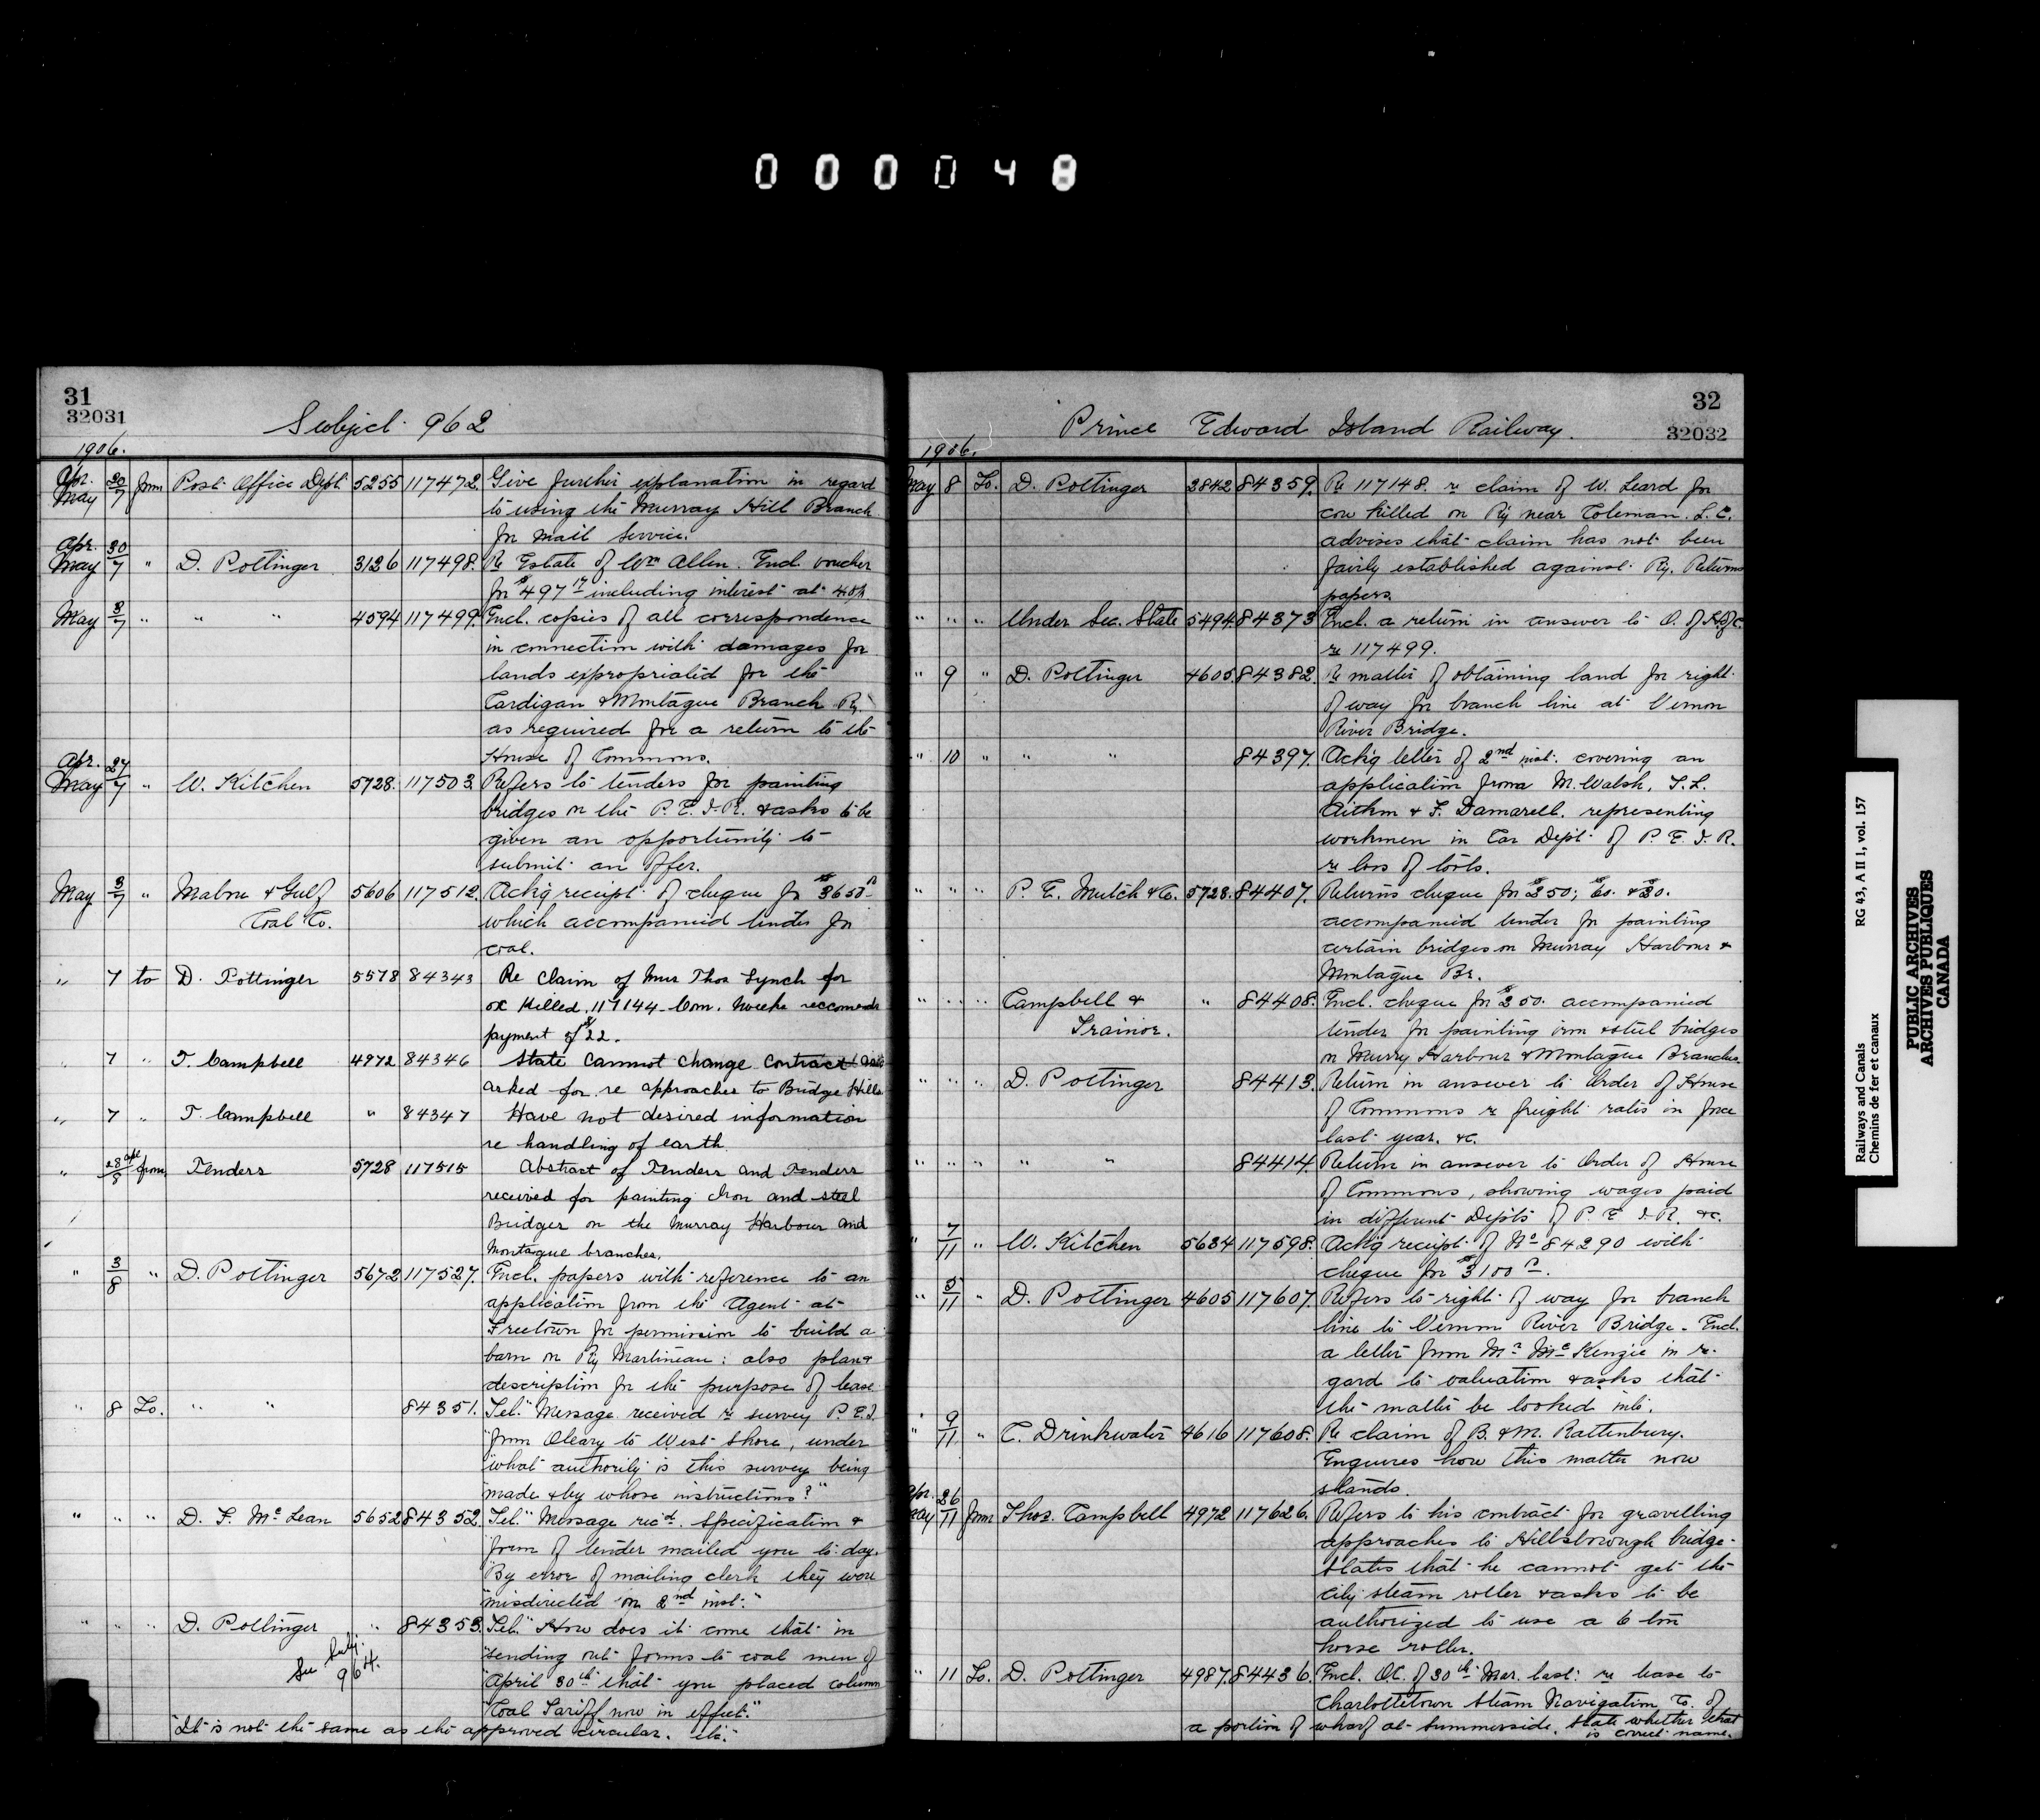 000048
31
32031
Subject 962
1906.
Apr. 30 May 7 from Post Office Dept. 5255 117472. Give further explanation in regard
to using the Murray Hill Branch
for Mail Service.
Apr. 30 May 7 " D. Pottinger 3126 117498. Re Estate of Wm Allen. Encl. voucher
for $497 17 including interest at
May 3/7 " " " 4594 117499. Encl. copies of all correspondence
in connection with damages for
lands expropriated for the
Cardigan & Montague Branch Ry
as required for a return to the
House of Commons.
Apr. 27 May 7 " W. Kitchen 5728. 117503. Refers to tenders for painting
bridges on the P. E. I. R. & asks to be
given an opportunity to
submit an offer.
May 3/7 " Mabou & Gulf 5606 117512. Ackg receipt of cheque for $3650
Coal Co. which accompanied tender for
coal.
" 7 to D. Pottinger 5578 84343 Re Claim of Mrs Thos Lynch for
ox killed. 117144 - Com.
payment of $22.
" 7 " T. Campbell 4972 84346 State cannot change Contract
asked for re approaches to Bridge Hills
" 7 " T. Campbell " 84347 Have not desired information
re handling of earth
" 28 Apl/8 from Tenders 5728 117515 Abstract of Tenders and Tenders
received for painting Iron and steel
Bridges on the Murray Harbour and
Montague branches.
" 3/8 " D. Pottinger 5672 117527. Encl. papers with reference to an
application from the Agent at
Freetown for permission to build a
barn on Ry Martineau: also plan &
description for the purpose of lease
" 8 To. " " 84351. Tel. "Message received re survey P.E.I.
"from Oleary to West Shore, under
"what authority is this survey being
"made & by whose instructions?"
" " " D. F. McLean 5652 84352. Tel. "Message recd. Specification &
"form of tender mailed you to-day.
"By error of mailing clerk they were
"misdirected on 2nd inst."
" " " D. Pottinger " 84353. Tel. "How does it come that in
See Subj. 964. "sending out forms to coal men of
"April 30th that you placed column
"Coal Tariff now in effect."
"It is not the same as the approved circular. etc."
Prince Edward Island Railway.
32
32032
1906.
May 8 To. D. Pottinger 3842 84359. Re 117148. re claim of W. Leard for
cow killed on Ry near Coleman. L. C.
advises that claim has not been
fairly established against Ry. Returns
papers.
" " " Under Sec. State 5494. 84373 Encl. a return in answer to O. of H. of C.
re 117499.
" 9 " D. Pottinger 4605. 84382. Re matter of obtaining land for right
of way for branch line at Vernon
River Bridge.
" 10 " " " 84397. Ackg letter of 2nd inst. covering an
application from M. Walsh, T. L.
Aitken & F. Damarell. representing
workmen in Car Dept. of P. E. I. R.
re loss of tools.
" " " P. E. Mutch & Co. 5728. 84407. Returns cheque for $250; $60. & $30.
accompanied tender for painting
certain bridges on Murray Harbour &
Montague Br.
" " " Campbell & " 84408. Encl. cheque for $250. accompanied
Trainor. tender for painting iron & steel bridges
on Murry Harbour & Montague Branches.
" " " D. Pottinger 84413. Return in answer to Order of House
of Commons re freight rates in force
last year. &c.
" " " " " 84414. Return in answer to Order of House
of Commons, showing wages paid
in different Depts of P. E. I. R. &c.
" 7/11 " W. Kitchen 5634 117598. Ackg receipt of No 84290 with
cheque for $3100
" 5/11 " D. Pottinger 4605 117607. Refers to right of way for branch
line to Vernon River Bridge - Encl.
a letter from Mr McKenzie in re-
gard to valuation & asks that
the matter be looked into.
" 9/11 " C. Drinkwater 4616 117608. Re claim of B. & M. Rattenbury.
Enquires how this matter now
stands.
Apr. 26 May 11 from Thos. Campbell 4972 117626. Refers to his contract for gravelling
approaches to Hillsborough bridge -
States that he cannot get the
city steam roller & asks to be
authorized to use a 6 ton
horse roller.
" 11 To. D. Pottinger 4987. 84436. Encl. O.C. of 30th Mar. last: re lease to
Charlottetown Steam Navigation Co. of
a portion of wharf at Summerside. State whether that
is correct name.
Railways and Canals
Chemins de fer et canaux
RG 43, A II 1, vol. 157
PUBLIC ARCHIVES
ARCHIVES PUBLIQUES
CANADA